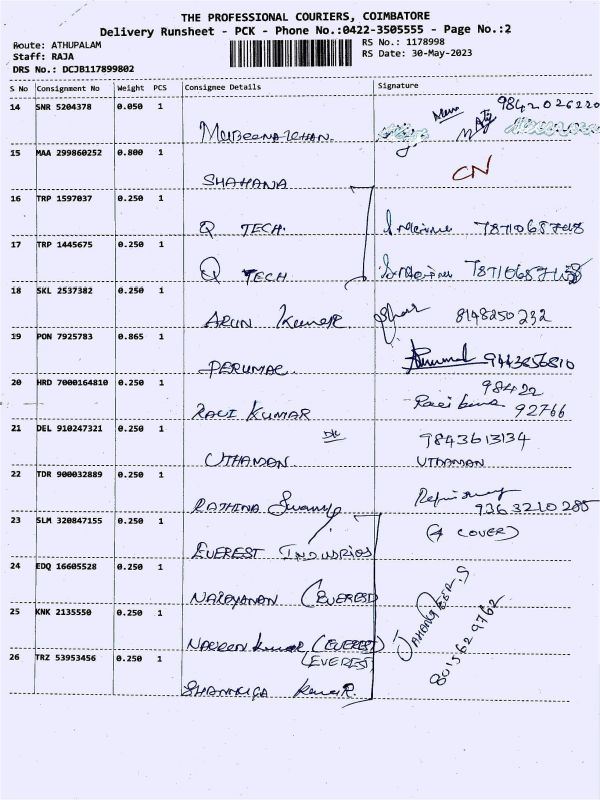 THE PROFESSIONAL COURIERS, COIMBATORE
Delivery Runsheet - PCK - Phone No.:0422-3505555 - Page No.:2
Route: ATHUPALAM
Staff: RAJA
DRS No.: DCJB117899802
RS No.: 1178998
RS Date: 30-May-2023
S No Consignment No Weight PCS Consignee Details Signature
14 SNR 5204378 0.050 1 9842026220
15 MAA 299860252 0.800 1 SHAHANA CN
16 TRP 1597037 0.250 1 Q TECH. 7871065748
17 TRP 1445675 0.250 1 Q TECH
18 SKL 2537382 0.250 1 ARUN Kumar 8148250232
19 PON 7925783 0.865 1 PERUMAL. 9443656810
20 HRD 7000164810 0.250 1 RAVI KUMAR 98422 92766
21 DEL 910247321 0.250 1 UTHAMAN. 9843613134 UTHAMAN
22 TDR 900032889 0.250 1 RATHINA Swamy 9363210285
23 SLM 320847155 0.250 1 EVEREST INDUSTRIES (4 COVER)
24 EDQ 16605528 0.250 1 NARAYANAN (EVEREST)
25 KNK 2135550 0.250 1 NAREEN Kumar (EVEREST) JAHANGEER.S
26 TRZ 53953456 0.250 1 (EVEREST) Kumar. 8015629762